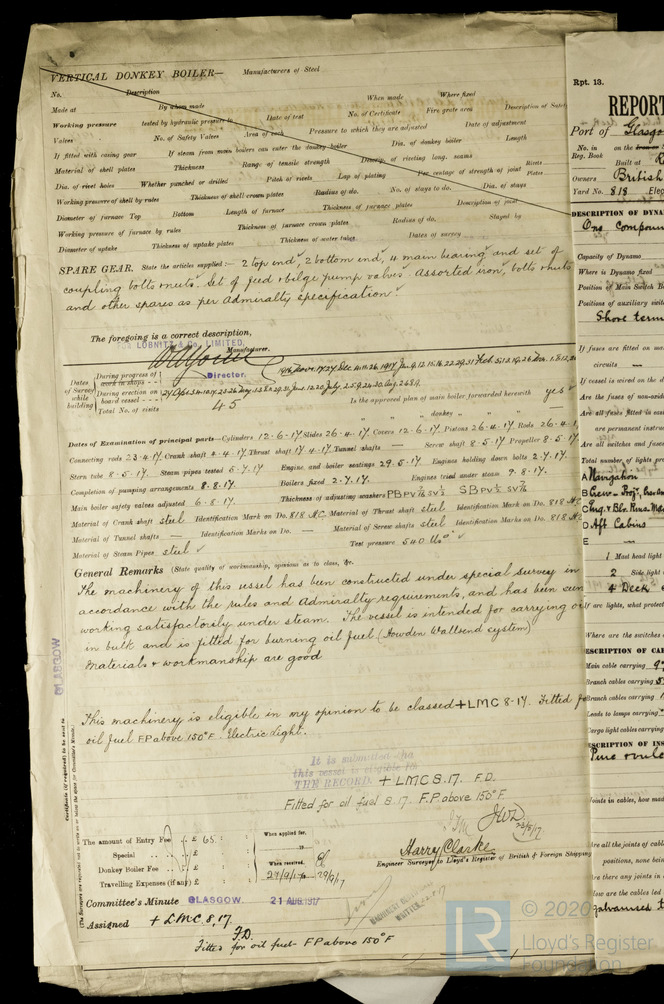 VERTICAL DONKEY BOILER— Manufacturers of Steel
No. Description
Made at By whom made When made Where fixed
Working pressure tested by hydraulic pressure to Date of test No. of Certificate Fire grate area Description of Safety
Valves No. of Safety Valves Area of each Pressure to which they are adjusted Date of adjustment
If fitted with easing gear If steam from main boilers can enter the donkey boiler Dia. of donkey boiler Length
Material of shell plates Thickness Range of tensile strength Descrip. of riveting long. seams
Dia. of rivet holes Whether punched or drilled Pitch of rivets Lap of plating Per centage of strength of joint Rivets Plates
Working pressure of shell by rules Thickness of shell crown plates Radius of do. No. of stays to do. Dia. of stays
Diameter of furnace Top Bottom Length of furnace Thickness of furnace plates Description of joint
Working pressure of furnace by rules Thickness of furnace crown plates Radius of do. Stayed by
Diameter of uptake Thickness of uptake plates Thickness of water tubes Dates of survey
SPARE GEAR. State the articles supplied:— 2 top end, 2 bottom end, 4 main bearing and set of
coupling bolts & nuts. Set of feed & bilge pump valves. Assorted iron, bolts & nuts
and other spares as per Admiralty specification.
The foregoing is a correct description,
LOBNITZ & Co., LIMITED,
Manufacturer.
Director.
Dates of Survey while building
During progress of work in shops - -
During erection on board vessel - - -
Total No. of visits 45
Is the approved plan of main boiler forwarded herewith yes
" " " donkey " " "
Dates of Examination of principal parts—Cylinders 12-6-17 Slides 26-4-17 Covers 12-6-17 Pistons 26-4-17 Rods 26-4-1
Connecting rods 23-4-17 Crank shaft 2-4-17 Thrust shaft 17-4-17 Tunnel shafts — Screw shaft 8-5-17 Propeller 8-5-17
Stern tube 8-5-17. Steam pipes tested 5-7-17 Engine and boiler seatings 29-5-17 Engines holding down bolts 2-7-17.
Completion of pumping arrangements 8-8-17. Boilers fixed 2-7-17. Engines tried under steam 9-8-17.
Main boiler safety valves adjusted 6-8-17. Thickness of adjusting washers
Material of Crank shaft steel Identification Mark on Do. 818 HC Material of Thrust shaft steel Identification Mark on Do. 818 HC
Material of Tunnel shafts — Identification Marks on Do. — Material of Screw shafts steel Identification Marks on Do. 818 HC
Material of Steam Pipes steel Test pressure 540 lbs
General Remarks (State quality of workmanship, opinions as to class, &c.
The machinery of this vessel has been constructed under special survey in
accordance with the rules and Admiralty requirements, and has been seen
working satisfactorily under steam. The vessel is intended for carrying oil
in bulk and is fitted for burning oil fuel (Howden Wallsend system)
Materials & workmanship are good
This machinery is eligible in my opinion to be classed + LMC 8-17. Fitted for
oil fuel F.P. above 150°F. Electric light.
It is submitted that
this vessel is eligible for
THE RECORD. + LMC 8.17. F.D.
Fitted for oil fuel 8.17. F.P. above 150°F
GLASGOW
Certificate (if required) to be sent to
(The Surveyors are requested not to write on or below the space for Committee's Minute.)
The amount of Entry Fee .. £ 65 : :
Special .. .. £ : :
Donkey Boiler Fee .. £ : :
Travelling Expenses (if any) £ : :
When applied for.
When received.
Harry Clarke
Engineer Surveyor to Lloyd's Register of British & Foreign Shipping
Committee's Minute GLASGOW 21 AUG. 1917
Assigned + LMC 8,17.
F.D.
Fitted for oil fuel F.P. above 150°F
Rpt. 13.
REPORT
Port of Glasgo
No. in Reg. Book on the
Built at
Owners British
Yard No. 818 Elec
DESCRIPTION OF DYNA
One compoun
Capacity of Dynamo
Where is Dynamo fixed
Position of Main Switch B
Positions of auxiliary switc
Shore term
If fuses are fitted on ma
circuits —
If vessel is wired on the d
Are the fuses of non-oxid
Are all fuses fitted in eas
are permanent instruc
Are all switches and fuses
Total number of lights pr
A Navigation
B Crew
C Eng. & Blr. Rms.
D Aft Cabins
E —
1 Mast head light
2 Side light
4 Deck
If arc lights, what protect
Where are the switches
DESCRIPTION OF CAB
Main cable carrying 9
Branch cables carrying 5
Branch cables carrying
Leads to lamps carrying
Cargo light cables carrying
DESCRIPTION OF INS
Pure
Joints in cables, how mad
Are all the joints of cabl
positions, none bein
Are there any joints in
How are the cables led
galvanised
© 2020
LR
Lloyd's Register
Foundation